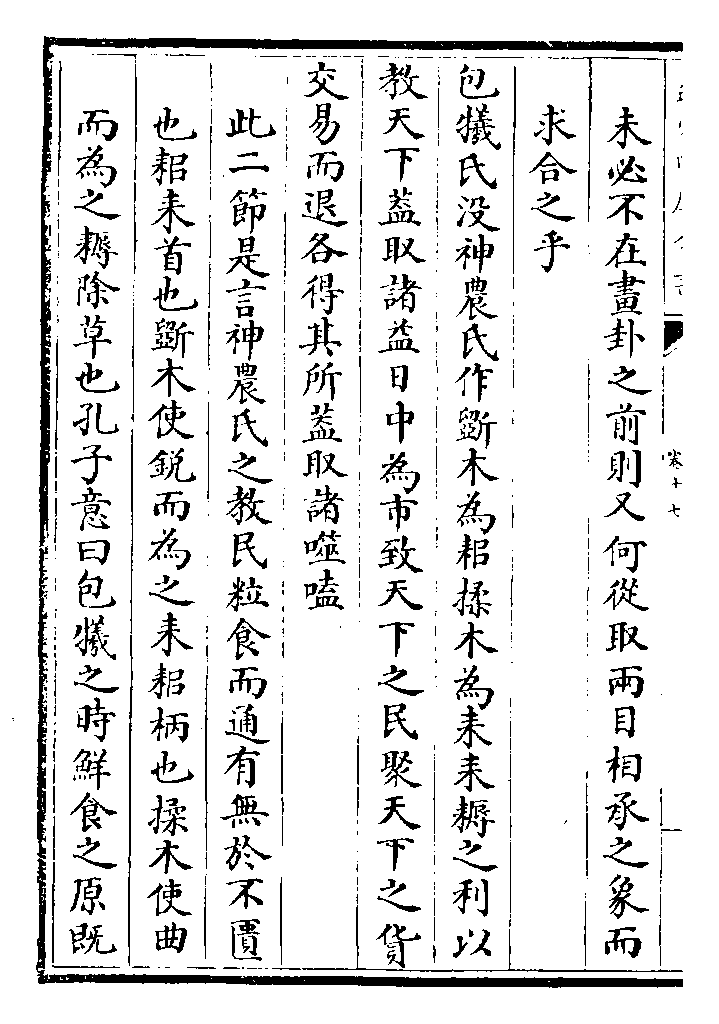 卷十七
未必不在畫卦之前則又何從取兩目相承之象而
求合之乎
包犧氏没神農氏作斵木為耜揉木為耒耒耨之利以
教天下葢取諸益日中為市致天下之民聚天下之貨
交易而退各得其所葢取諸噬嗑
此二節是言神農氏之教民粒食而通有無於不匱
也耜耒首也斵木使鋭而為之耒耜柄也揉木使曲
而為之耨除草也孔子意曰包犧之時鮮食之原既